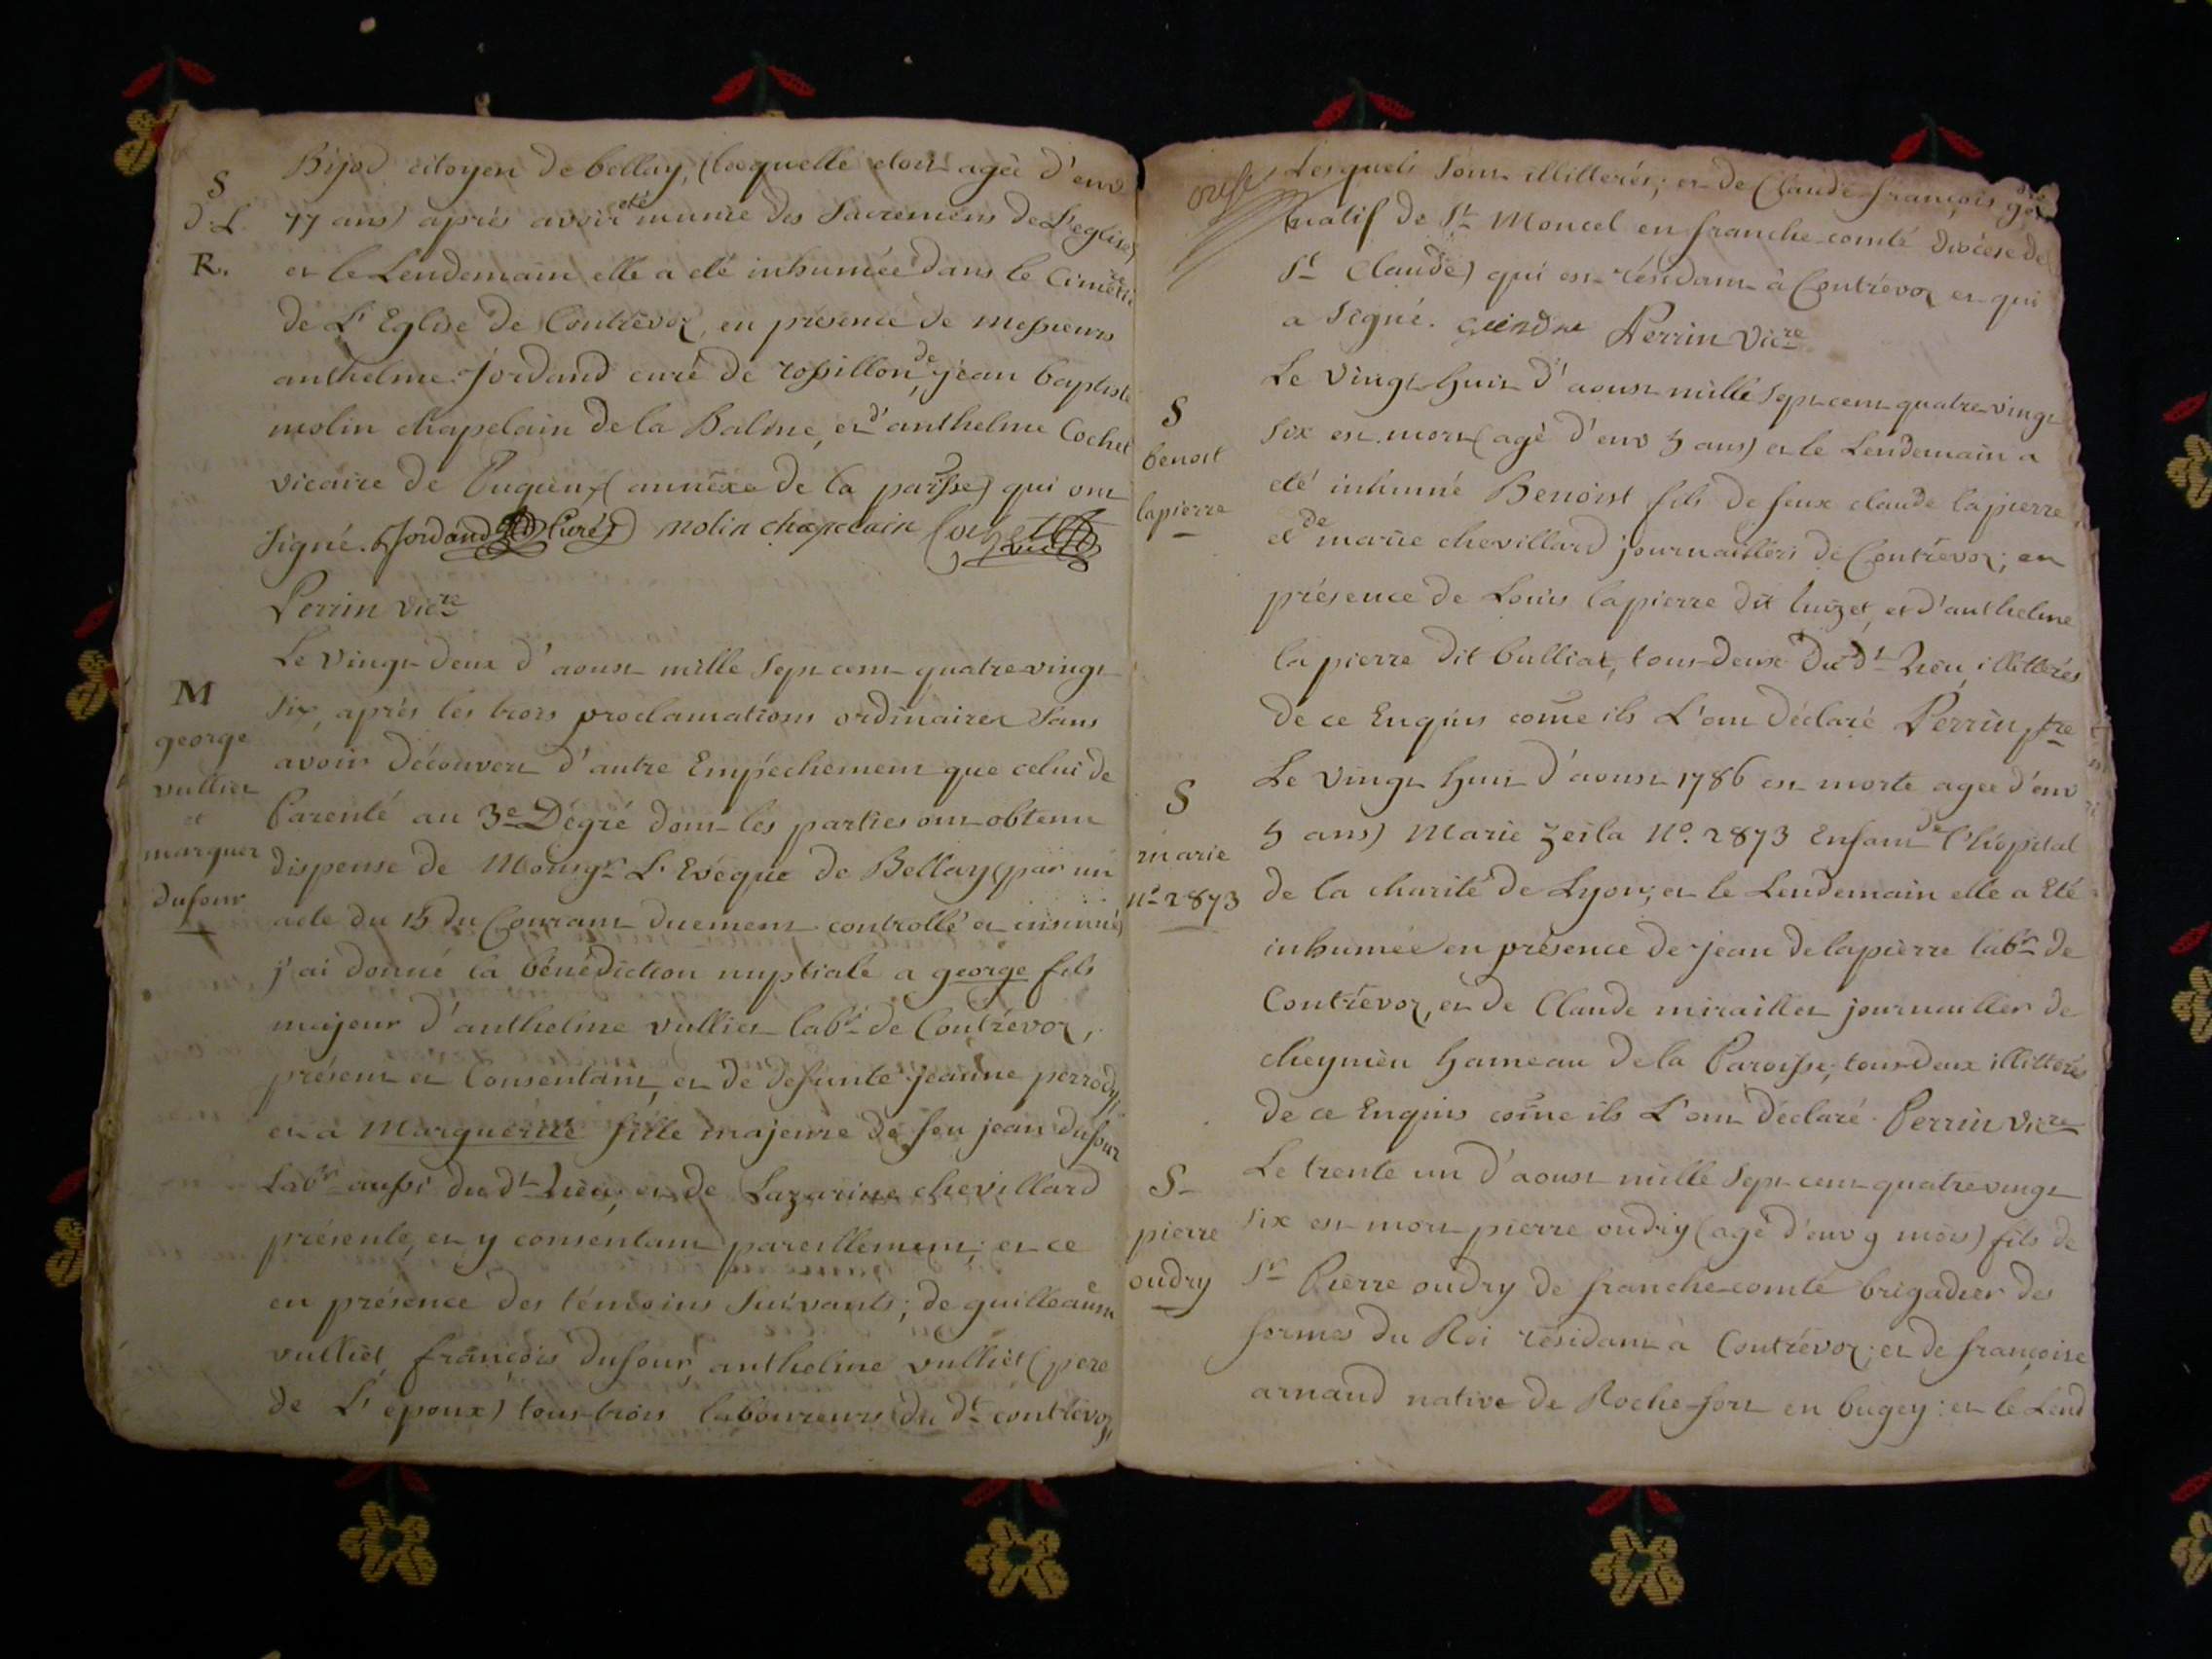 S
d. L.
R.
Bijod citoyen de bellay, (laquelle etoit agée d'env
77 ans) après avoir eté munie des Sacremens de L'eglise,
et le Lendemain elle a eté inhumée dans le Cimetie
de L'Eglise de Contrevoz, en présence de messieurs
anthelme Jordand curé de rossillon, de jean baptiste
molin chapelain de la Balme, et d'anthelme Cochet
vicaire de Pugieux (annexe de la parsse) qui ont
signé. Jordand Curé molin chapelain Cochet
Perrin vicre
M
george
vulliet
et
marguer
dufour
Le vingt deux d'aoust mille Sept cent quatre vingt
Six, après les trois proclamations ordinaires Sans
avoir découvert d'autre Empéchement que celui de
Parenté au 3e Dégré dont les parties ont obtenu
dispense de Monsgr L'Evéque de Bellay (par un
acte du 15 du Courant duement controllé et insinué)
j'ai donné la bénédiction nuptiale a george fils
majeur d'anthelme vulliet labr de Contrévoz,
présent et Consentant, et de defunte jeanne perrody,
et a Marguerite fille majeure de feu jean dufour
Labr aussi du dt Lieu, et de Lazarine chevillard
présente, et y consentant pareillement; et ce
en présence des témoins Suivants; de guilleaume
vulliet, françois dufour, anthelme vulliet (pere
de L'époux) tous trois laboureurs du dt contrévoz,
Lesquels Sont illiterés; et de Claude françois
natif de St Moncel en franche-comté diocèse de
St Claude) qui est résidant à Contrévoz et qui
a Signé. Perrin Vicre
S
benoit
lapierre
Le vingt huit d'aoust mille Sept cent quatre vingt
Six est mort (agé d'env 5 ans) et le Lendemain a
eté inhumé Benoist fils de feux claude lapierre
et de marie chevillard journailliers de Contrévoz; en
présence de Louis lapierre dit luizet, et d'anthelme
lapierre dit bulliat, tous deux du dt Lieu, illettérés
de ce Enquis come ils L'ont déclaré Perrin ptre
S
marie
no 2873
Le vingt huit d'aoust 1786 est morte agee d'env
5 ans) Marie Zeila No. 2873 Enfant de l'hôpital
de la charité de Lyon; et le Lendemain elle a Eté
inhumée en présence de jean delapierre labr de
Contrévoz, et de Claude miraillet journallier de
cheynieu hameau de la Paroisse; tous deux illittérés
de ce Enquis come ils L'ont déclaré. Perrin Vicre
S
pierre
oudry
Le trente un d'aoust mille Sept cent quatre vingt
Six est mort pierre oudry (agé d'env 9 mois) fils de
Sr Pierre oudry de franche-comté brigadier des
fermes du Roi résidant à Contrévoz; et de françoise
arnaud native de Roche-fort en bugey: et le Lend